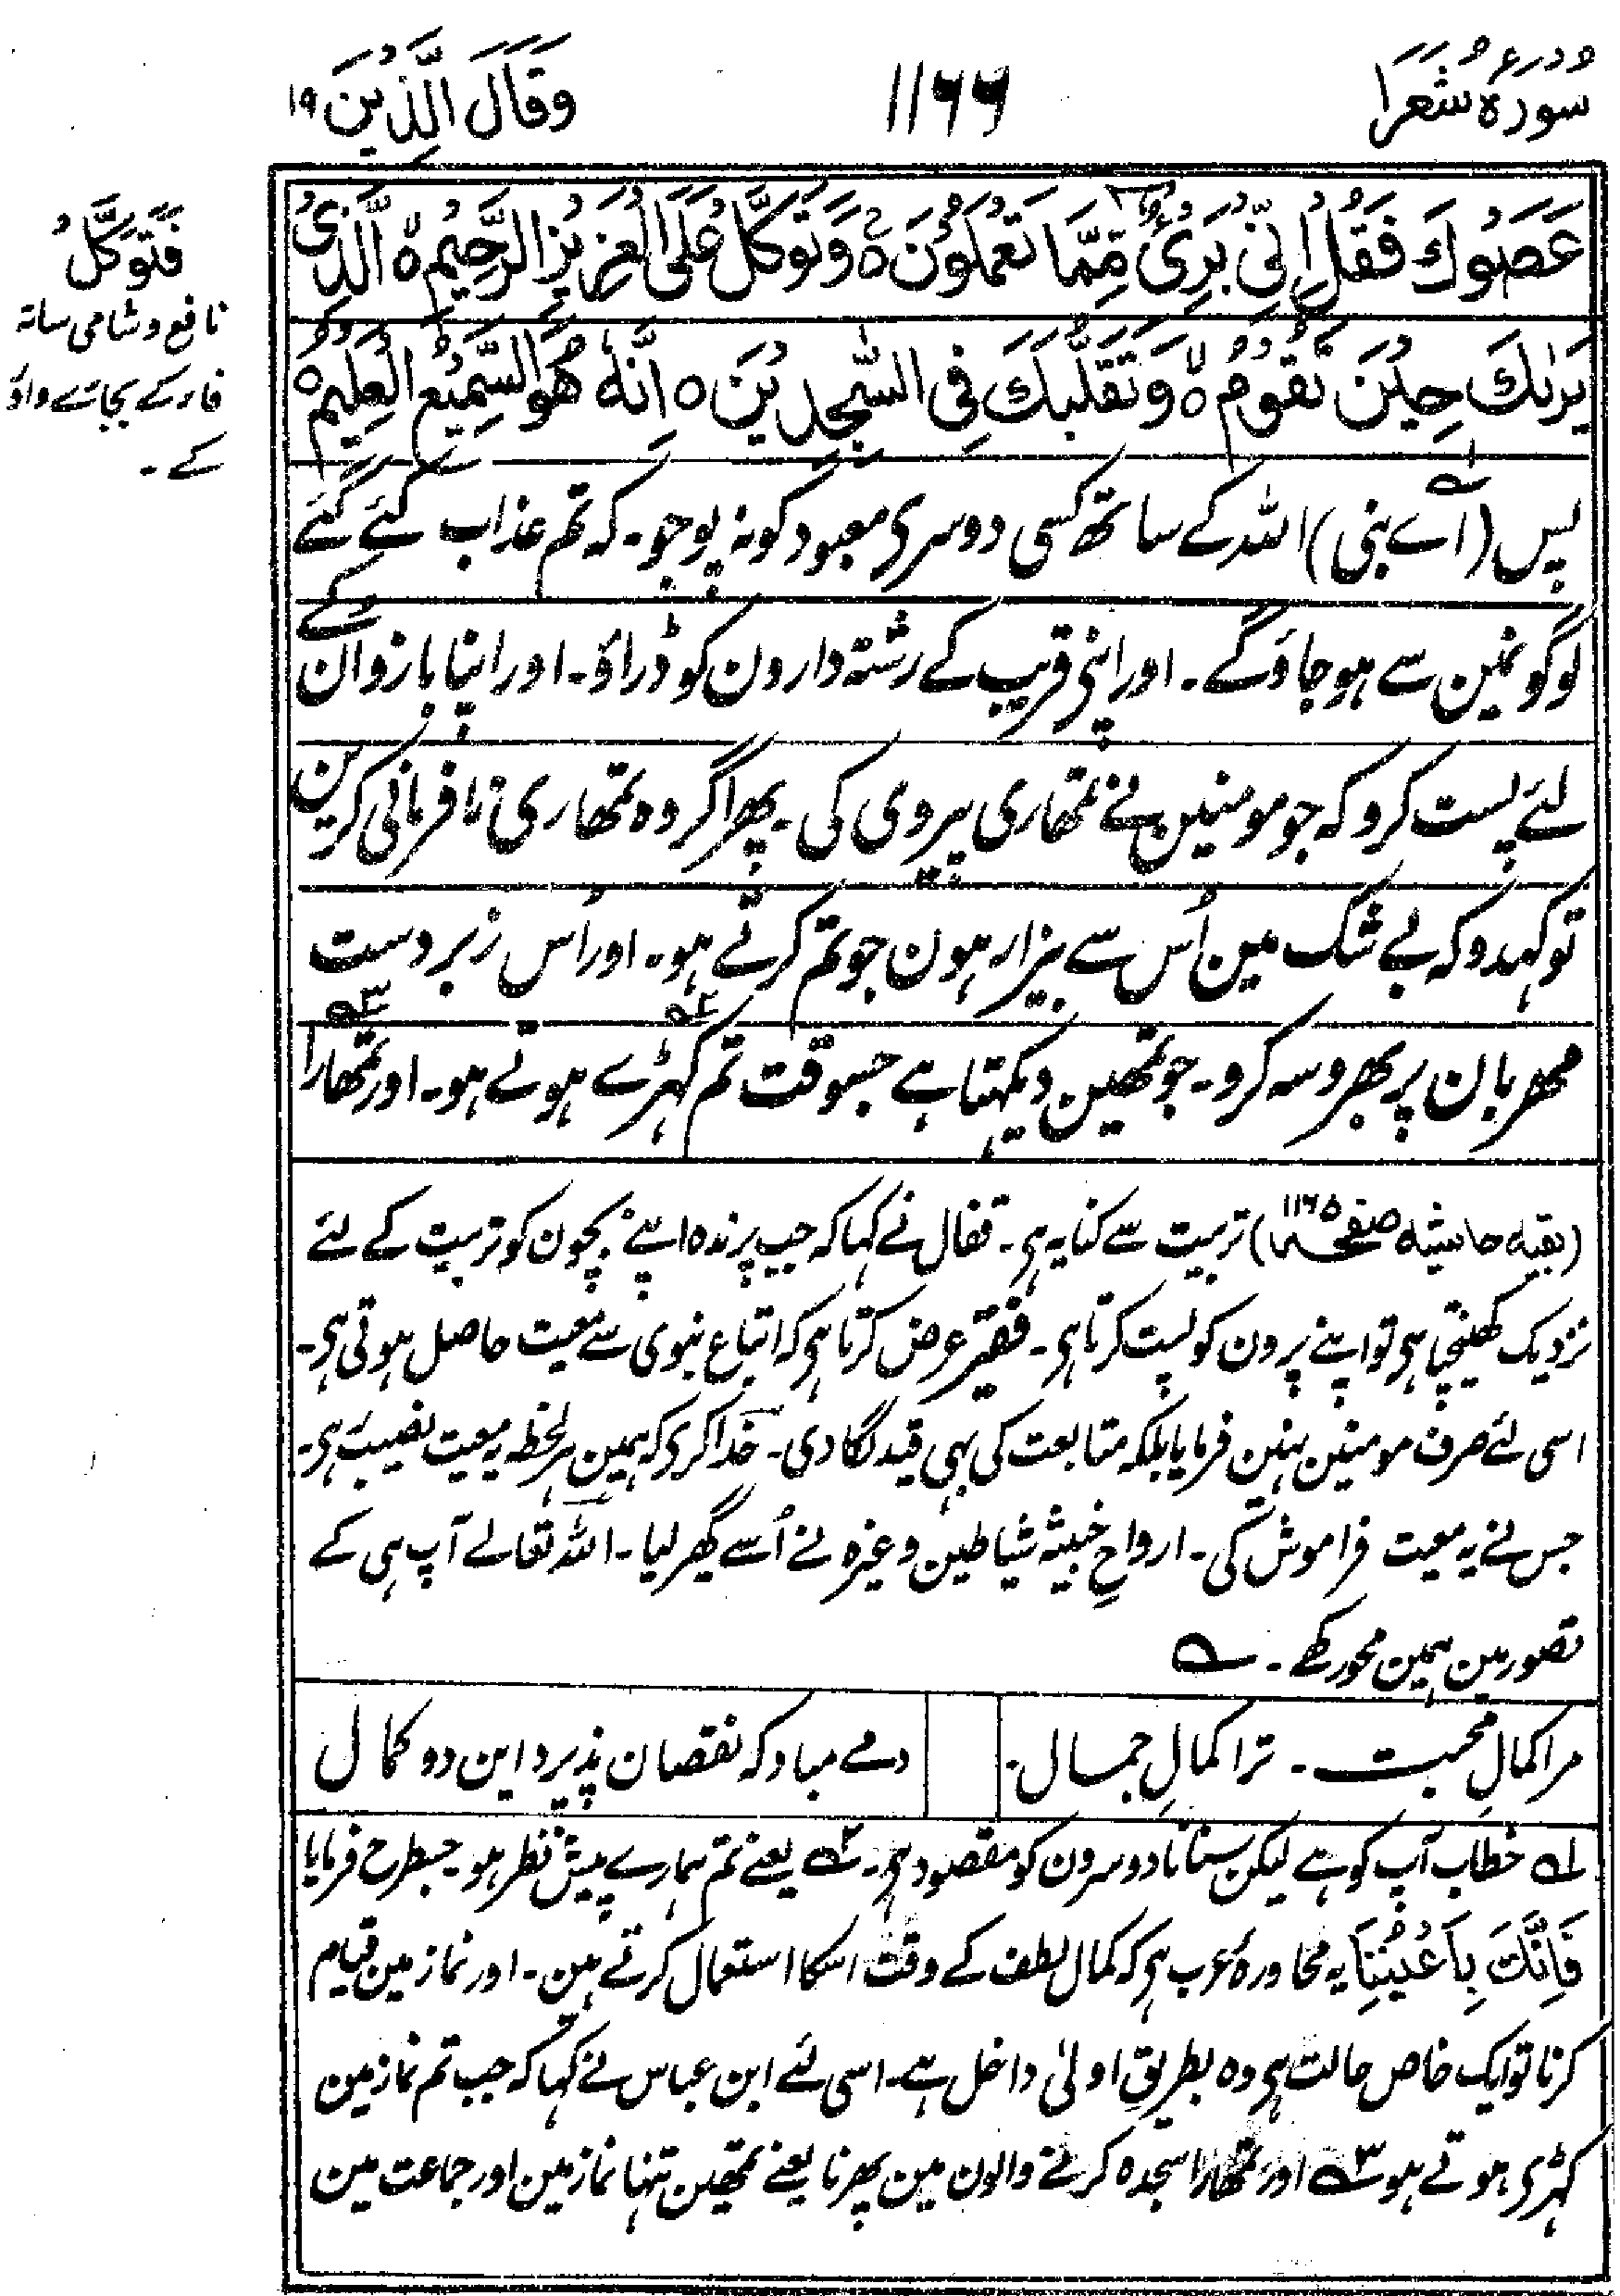 سورہ شُعَرَا
۱۱۶۶
وَقَالَ الَّذِیْنَ ۱۹
عَصَوْكَ فَقُلْ اِنِّیْ بَرِیْٓءٌ مِّمَّا تَعْمَلُوْنَ ہ وَتَوَكَّلْ عَلَی الْعَزِیْزِ الرَّحِیْمِ ہ الَّذِیْ
یَرٰىكَ حِیْنَ تَقُوْمُ ہ وَتَقَلُّبَكَ فِی السّٰجِدِیْنَ ہ اِنَّهٗ هُوَ السَّمِیْعُ الْعَلِیْمُ ہ
فَتَوَكَّلْ
نافع و شامی ساتہ
فار کے بجائے واؤ
کے ۔
پس (اے نبی) ۱؎ اللہ کے ساتھ کسی دوسری معبود کو نہ پوجو۔ کہ تم عذاب کئے گئے
لوگونمین سے ہو جاؤ گے ۔ اور اپنی قریب کے رشتہ دارون کو ڈراؤ۔ اور اپنا بازو ان کے
لئے پست کرو کہ جو مومنین نے تمھاری پیروی کی ۔ پھر اگر وہ تمھاری نافرمانی کرین
تو کہدو کہ بے شک مین اُس سے بیزار ہون جو تم کرتے ہو۔ اور اُس زبردست
مھربان پر بھروسہ کرو ۔ جو تمھین دیکہتا ہے جسوقت تم ۲؎ کہڑے ہوتے ہو۔ اور تمھارا ۳؎
(بقیہ حاشیہ صفحہ ۱۱۶۵) تربیت سے کنایہ ہی ۔ قفال نے کہا کہ جب پرندہ اپنے بچون کو تربیت کے لئے
نزدیک کھینچتا ہی تو اپنے پرون کو پست کرتا ہی ۔ فقیر عرض کرتا ہی کہ اتباع نبوی سے معیت حاصل ہوتی ہی ۔
اسی لئے صرف مومنین نہین فرمایا بلکہ متابعت کی بہی قید لگا دی ۔ خدا کری کہ ہمین ہر لحظہ یہ معیت نصیب ہی ۔
جس نے یہ معیت فراموش کی ۔ ارواحِ خبیثہ شیاطین وغیرہ نے اُسے گھر لیا ۔ اللہ تعالے آپ ہی کے
تصور مین ہمین محو رکھے ۔ ؎
مرا کمالِ محبت ۔ ترا کمالِ جمال ۔ دمے مباد کہ نقصان پذیرد این دو کمال
۱؎ خطاب آپ کو ہے لیکن سنانا دوسرون کو مقصود ہی ۔ ۲؎ یعنے تم ہمارے پیش نظر ہو ۔ جسطرح فرمایا
فَاِنَّكَ بِاَعْیُنِنَا یہ محاورۂ عرب ہی کہ کمال لطف کے وقت اسکا استعمال کرتے ہین ۔ اور نماز مین قیام
کرنا تو ایک خاص حالت ہی وہ بطریقِ اولیٰ داخل ہے ۔ اسی لئے ابن عباس نے کہا کہ جب تم نماز مین
کہڑی ہوتے ہو ۳؎ اور تمھارا سجدہ کرنے والون مین پھرنا یعنے تمھین تنہا نماز مین اور جماعت مین